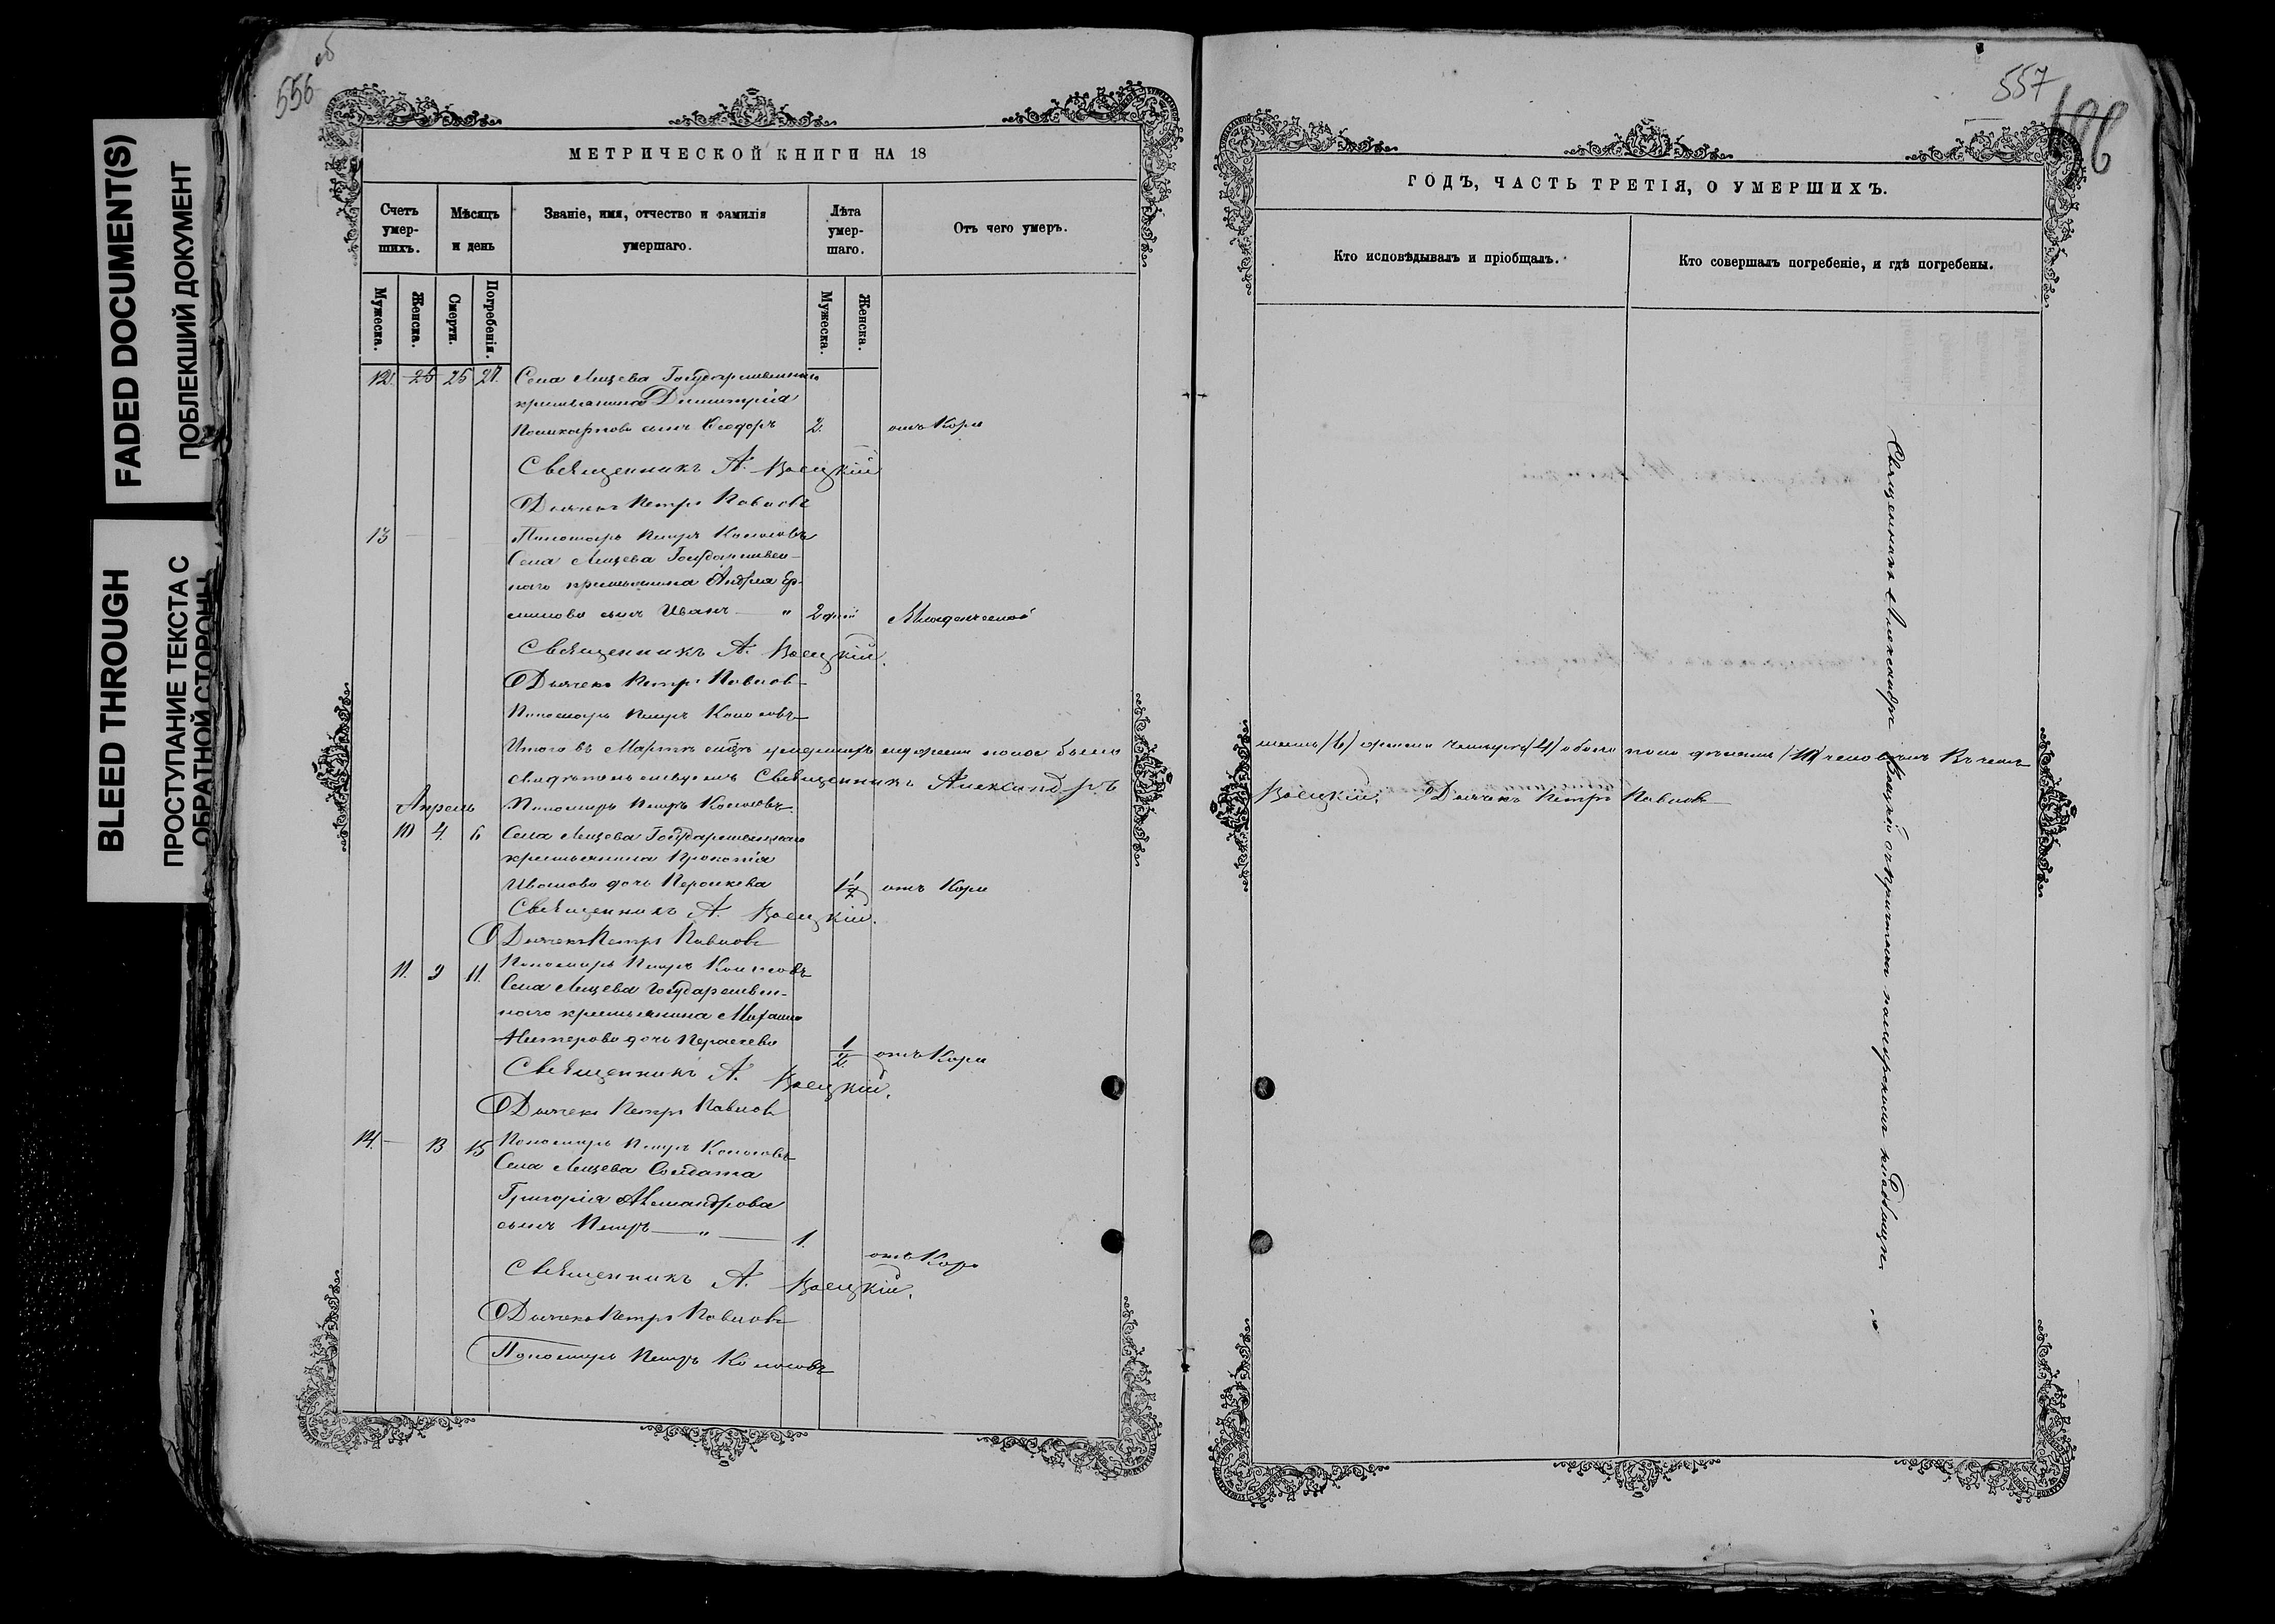 FADED DOCUMENT(S)
ПОБЛЕКШИЙ ДОКУМЕНТ
BLEED THROUGH
ПРОСТУПАНИЕ ТЕКСТА С
ОБРАТНОЙ СТОРОНЫ
556 об
МЕТРИЧЕСКОЙ КНИГИ НА 18
Счетъ умер-шихъ.
Мѣсяцъ и день
Званіе, имя, отчество и фамилія умершаго.
Лѣта умер-шаго.
Отъ чего умеръ.
Мужеска.
Женска.
Смерти.
Погребенія.
Мужеска.
Женска.
12. 25 25 27. Села Лицева Государственнаго
крестьянина Димитрія
Поликарпова сынъ Ѳеодоръ 2. отъ Кори
Священникъ А. Воецкій
Дьячекъ Петръ Павловъ
13 Пономарь Петръ Колосовъ
Села Лицева Государствен-
наго крестьянина Андрея Ер-
милова сынъ Иванъ — " 2 дней Младенческой
Священникъ А. Воецкій.
Дьячекъ Петръ Павловъ
Пономарь Петръ Колосовъ
Итого въ Мартѣ умершихъ мужеска пола было
свидѣтельствуемъ Священникъ Александръ
Апрель Пономарь Петръ Колосовъ.
10 4. 6 Села Лицева Государственнаго
крестьянина Прокопія
Иванова дочь 1 1/2 отъ Кори
Священникъ А. Воецкій.
Дьячекъ Петръ Павловъ
11. 9 11. Пономарь Петръ Колосовъ
Села Лицева Государствен-
наго крестьянина Михаила
Нестерова дочь 1/2 отъ Кори
Священникъ А. Воецкій.
Дьячекъ Петръ Павловъ
14. — 13 15 Пономарь Петръ Колосовъ
Села Лицева Солдата
Григорія Александрова
сынъ Петръ — " — 1. отъ Кори
Священникъ А. Воецкій.
Дьячекъ Петръ Павловъ
Пономарь Петръ Колосовъ
557
ГОДЪ, ЧАСТЬ ТРЕТІЯ, О УМЕРШИХЪ.
Кто исповѣдывалъ и пріобщалъ.
Кто совершалъ погребеніе, и гдѣ погребены.
/6/ женска четыре /4/ обоего пола десять /10/ человекъ Въ чемъ
Воецкій. Дьячекъ Петръ Павловъ
Священникъ Александръ Воецкій съ причтомъ на приходскомъ кладбищѣ.